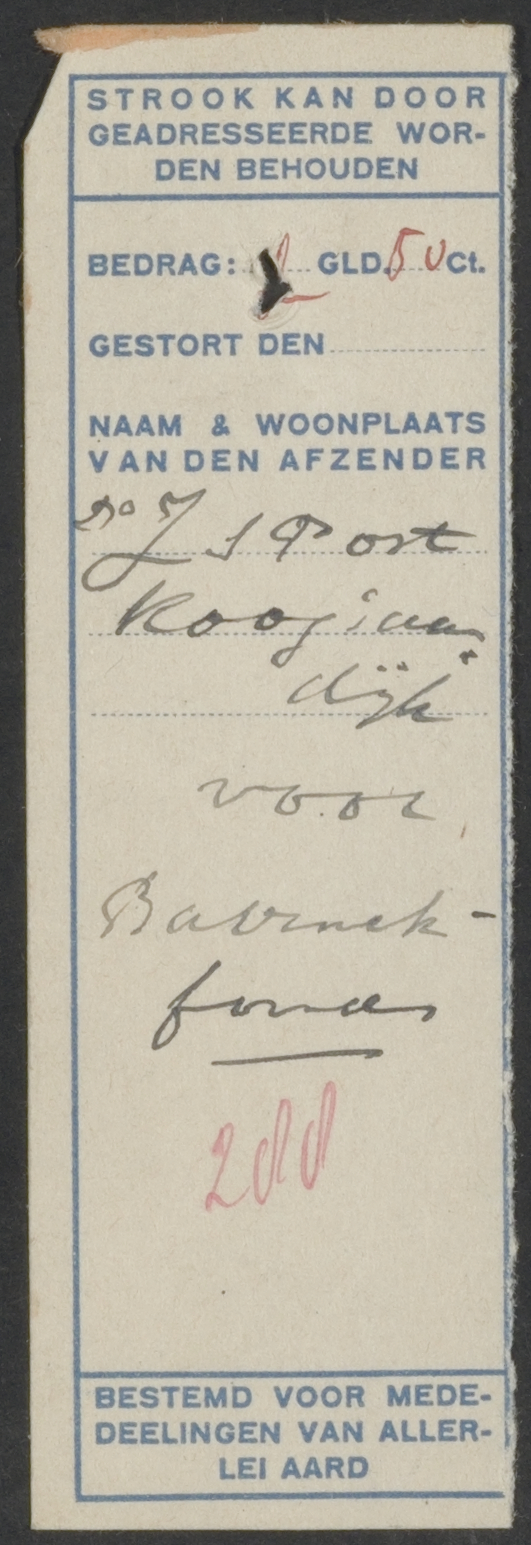 STROOK KAN DOOR
GEADRESSEERDE WOR-
DEN BEHOUDEN
BEDRAG: 2 GLD. 50 Ct.
GESTORT DEN
NAAM & WOONPLAATS
VAN DEN AFZENDER
Ds J S Post
Koog aan
dijk
voor
Bavinck-
fonds
288
BESTEMD VOOR MEDE-
DEELINGEN VAN ALLER-
LEI AARD